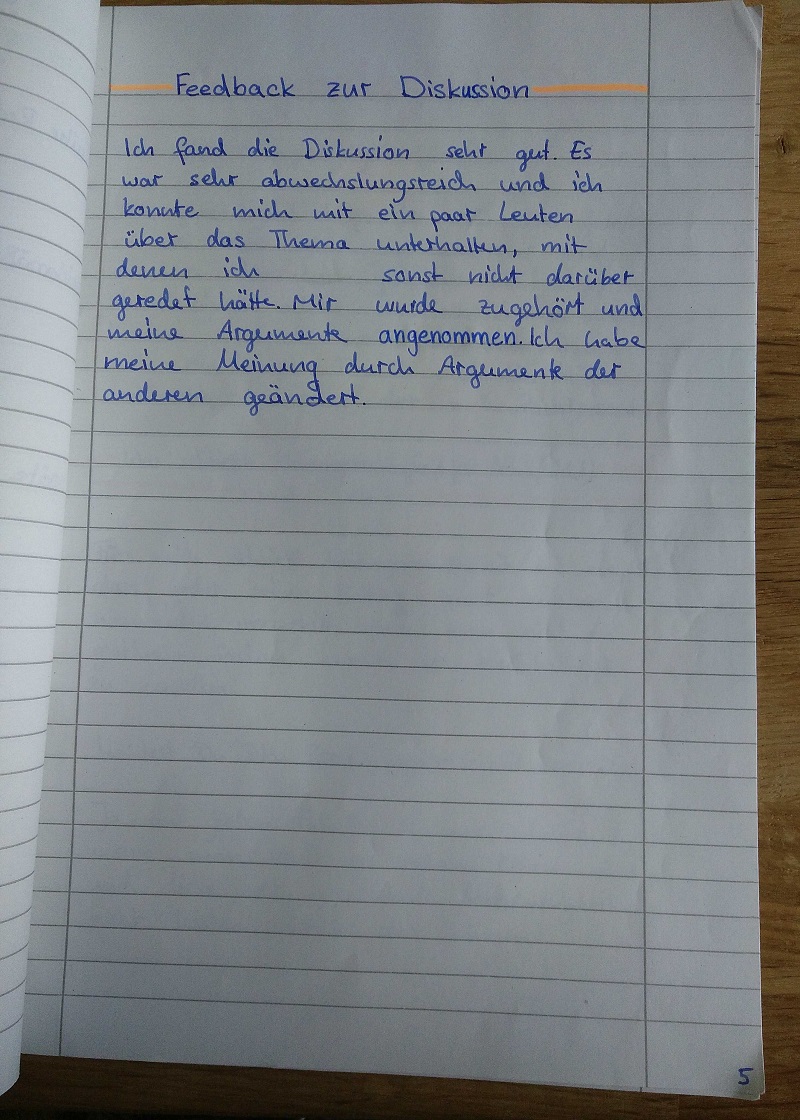 Feedback zur Diskussion
Ich fand die Diskussion sehr gut. Es
war sehr abwechslungsreich und ich
konnte mich mit ein paar Leuten
über das Thema unterhalten, mit
denen ich sonst nicht darüber
geredet hätte. Mir wurde zugehört und
meine Argumente angenommen. Ich habe
meine Meinung durch Argumente der
anderen geändert.
5